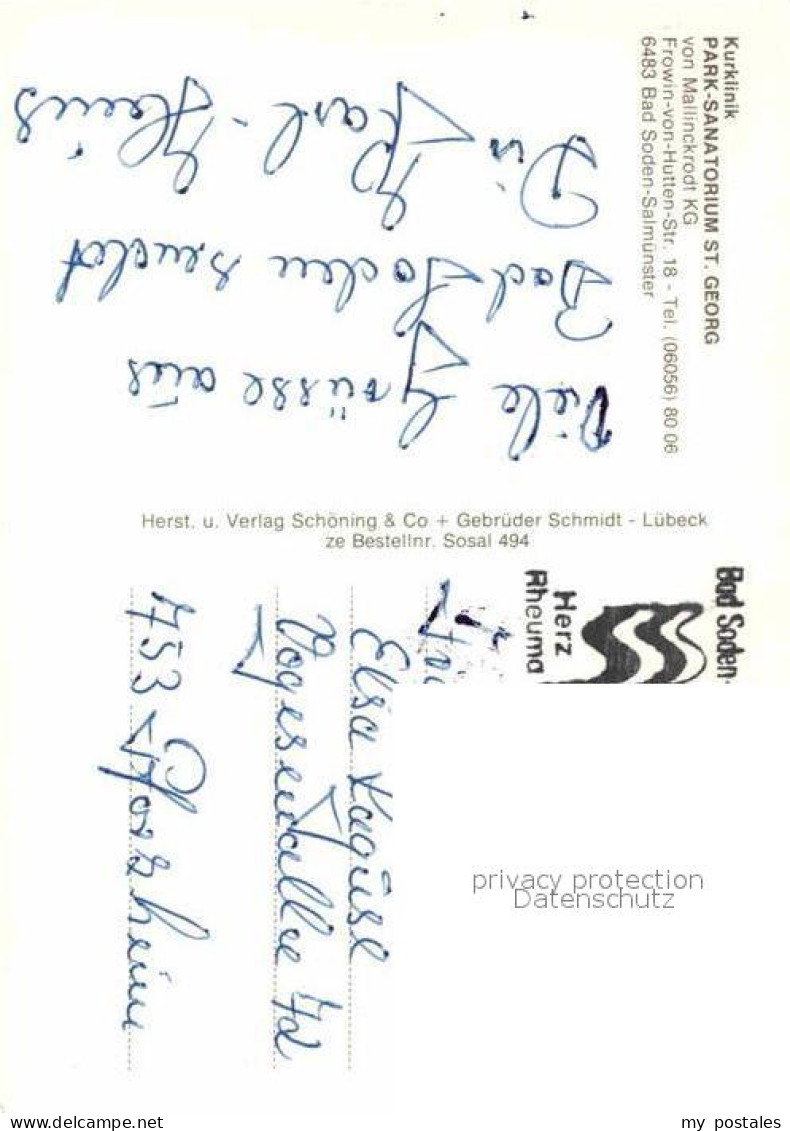 Kurklinik
PARK-SANATORIUM ST. GEORG
von Mallinckrodt KG
Frowin-von-Hutten-Str. 18 - Tel. (06056) 80 06
6483 Bad Soden-Salmünster
Viele Grüsse aus
Bad Soden sendet
Dir Karl-Heinz
Herst. u. Verlag Schöning & Co + Gebrüder Schmidt - Lübeck
ze Bestellnr. Sosal 494
Bad Soden-
Herz
Rheuma
Elsa
Vogesenallee 72
753 Pforzheim
privacy protection
Datenschutz
my postales